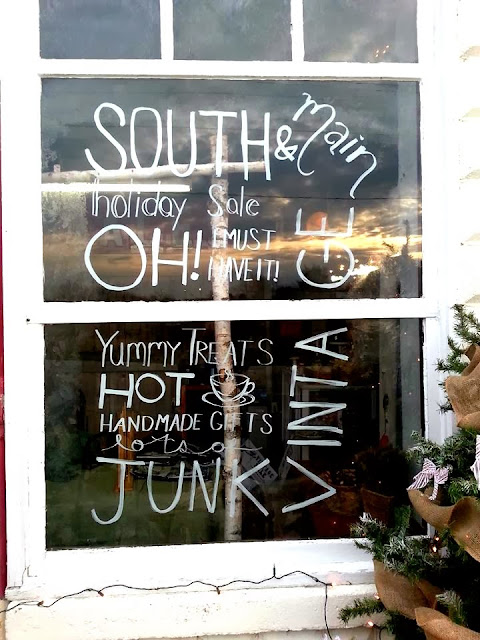 SOUTH & main
holiday Sale
OH! I MUST HAVE IT!
YUMMY TREATS
HOT
HANDMADE GIFTS
lots o
JUNK
VINTAGE